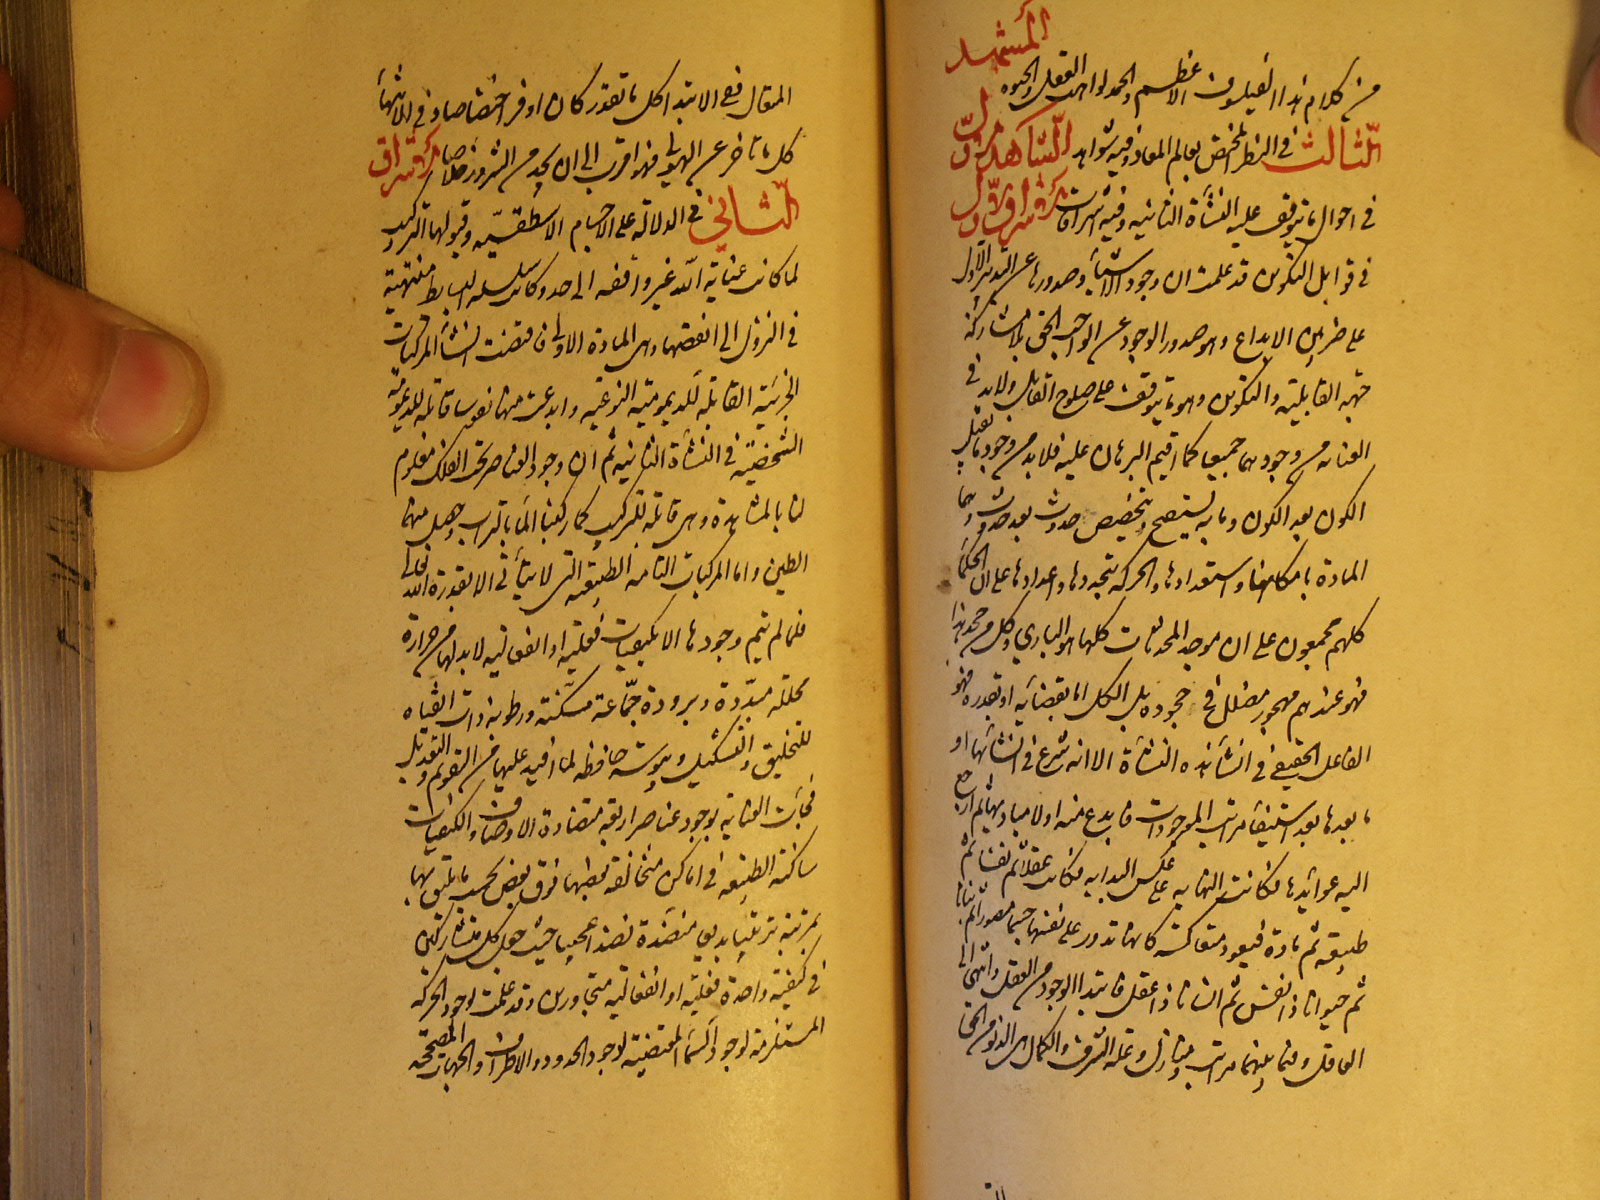 المشهد
من كلام هذا الفيلسوف الاعظم والحمد لواهب العقل والحيوة
الثالث في النظر المختص بعالم المعاد وفيه شواهد الشاهد الاول
في احوال ما يتوقف عليه النشأة الثانيه وفيه اشراقات الاشراق الاول
في قوابل التكوين قد علمت ان وجود الاشيأ وصدورها عن التدبير الاول
على ضربين الابداع وهو صدور الوجود عن الواجب الحق بلا مشاركة
جهة القابلية والتكوين وهو ما يتوقف على صلوح القابل ولابد في
العنايه من وجودهما جميعا كما اقيم البرهان عليه فلابد من وجود ما يقبل
الكون بعد الكون وما به يستصح ويتخصص حدوث بعد حدوث وهما
المادة بامكانها واستعدادها والحركه بتجددها واعدادها على ان الحكمأ
كلهم مجمعون على ان موجد المحدثات كلها هو الباري وكل من جحد هذا
فهو عندهم مهجور مضلل في جحوده بل الكل اما بقضائه او بقدره فهو
الفاعل الحقيقي في انشأ هذه النشأة الا انه شرع في انشائها او
ما بعدها بعد استيفأ مراتب الموجودات فابدع منه اولا مباديها ثم ارجع
اليه عوائدها فكانت النهايه على عكس البدايه فكانت عقلا ثم نفسا ثم
طبيعه ثم مادة فيعود متعاكسة كانها تدور على نفسها جسما مصورا ثم نباتا
ثم حيوانا ذا نفس ثم انسانا ذا عقل فابتدا الوجود من العقل وانتهى الى
العاقل وفيما بينهما مراتب ومنازل وعلة الشرف والكمال هى الدنو من الحق
المقال ففى الابتدا كل ما تقدر كان اوفر اختصاصا وفي الانتهأ
كل ما تاخر عن الهيولى فهو اقرب الى ان يجد من الشرور خلاصا الاشراق
الثاني في الدلالة على الاجسام الاسطقسيه وقبولها التركيب
لما كانت عناية الله غير واقفه الى حد وكانت سلسله البسايط منتهية
في النزول الى انقصها وهى المادة الاولى فاقتضت انشأ المركبات
الجزئية القابلة للديمومية النوعيه وابدعت منها نفوسا قابله للديمومة
الشخصية في النشأة الثانيه ثم ان وجود العناصر تحت الفلك معلوم
لنا بالمشاهدة وهى قابلة للتركيب كما ركبنا المأ بالتراب وحصل منهما
الطين واما المركبات التامه الطبيعه التى لا يتأتى الا بقدرة الله تعالى
فلما لم يتم وجودها الا بكيفيات فعليه او انفعاليه لابد لها من حرارة
محللة مبددة وبرودة جماعة مسكنة ورطوبة ذات انقياد
للتخليق والتشكيل ويبوسة حافظه لما افيد عليها من التقويم والتعديل
فجأت العناية بوجود عناصر اربعه متضادة الاوصاف والكيفيات
ساكنة الطبيعه في اماكن متخالفه بعضها فوق بعض بحسب ما يليق بها
مرتبة ترتيبا بديعا منضدة نضدا عجيبا حيث جعل كل متشاركين
في كيفية واحدة فعلية او انفعاليه متجاورين وقد علمت لوجود الحركة
المستلزمة لوجود السمأ المقتضية لوجود الحدود والاطراف والجهات المصححة